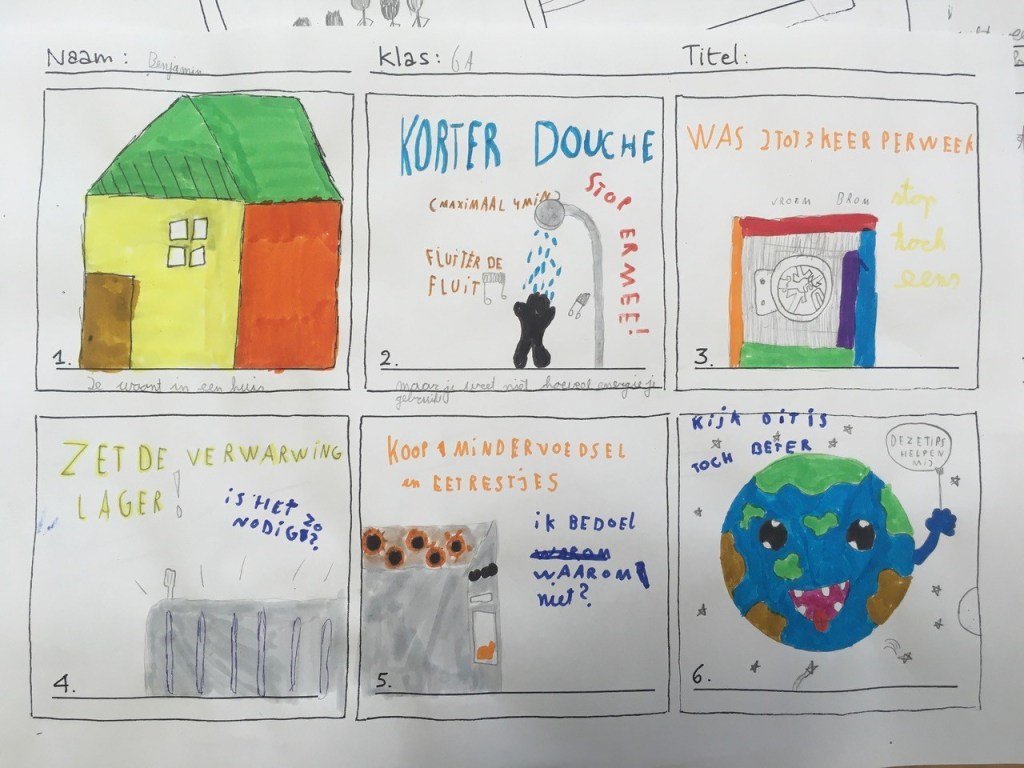 Naam: Benjamin
Klas: 6A
Titel:
1.
Je woont in een huis
KORTER DOUCHE
(MAXIMAAL 4 MIN
STOP ERMEE!
FLUITER DE
FLUIT
2.
maar je weet niet hoeveel energie je
gebruik
WAS 2 TOT 3 KEER PER WEEK
VROEM BROM
stop
toch
eens
3.
ZET DE VERWARWING
LAGER!
is HET ZO
NODIG?
4.
KOOP MINDER VOEDSEL
en EETRESTJES
iK BEDOEL
WAAROM
niet?
5.
KIJK DIT IS
TOCH BETER
DEZE TIPS
HELPEN
MIJ
6.